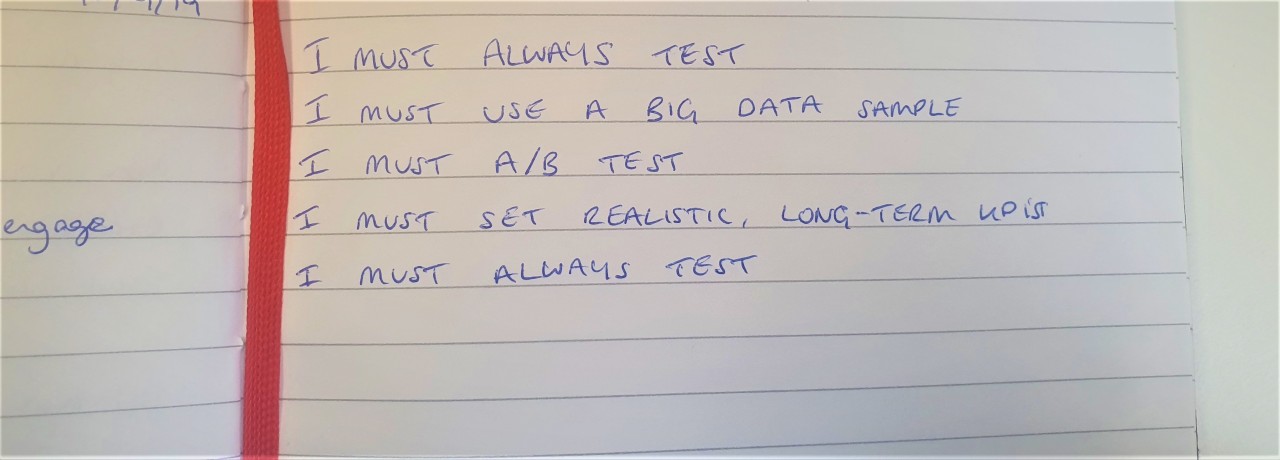 engage
I MUST ALWAYS TEST
I MUST USE A BIG DATA SAMPLE
I MUST A/B TEST
I MUST SET REALISTIC, LONG-TERM KPIS
I MUST ALWAYS TEST